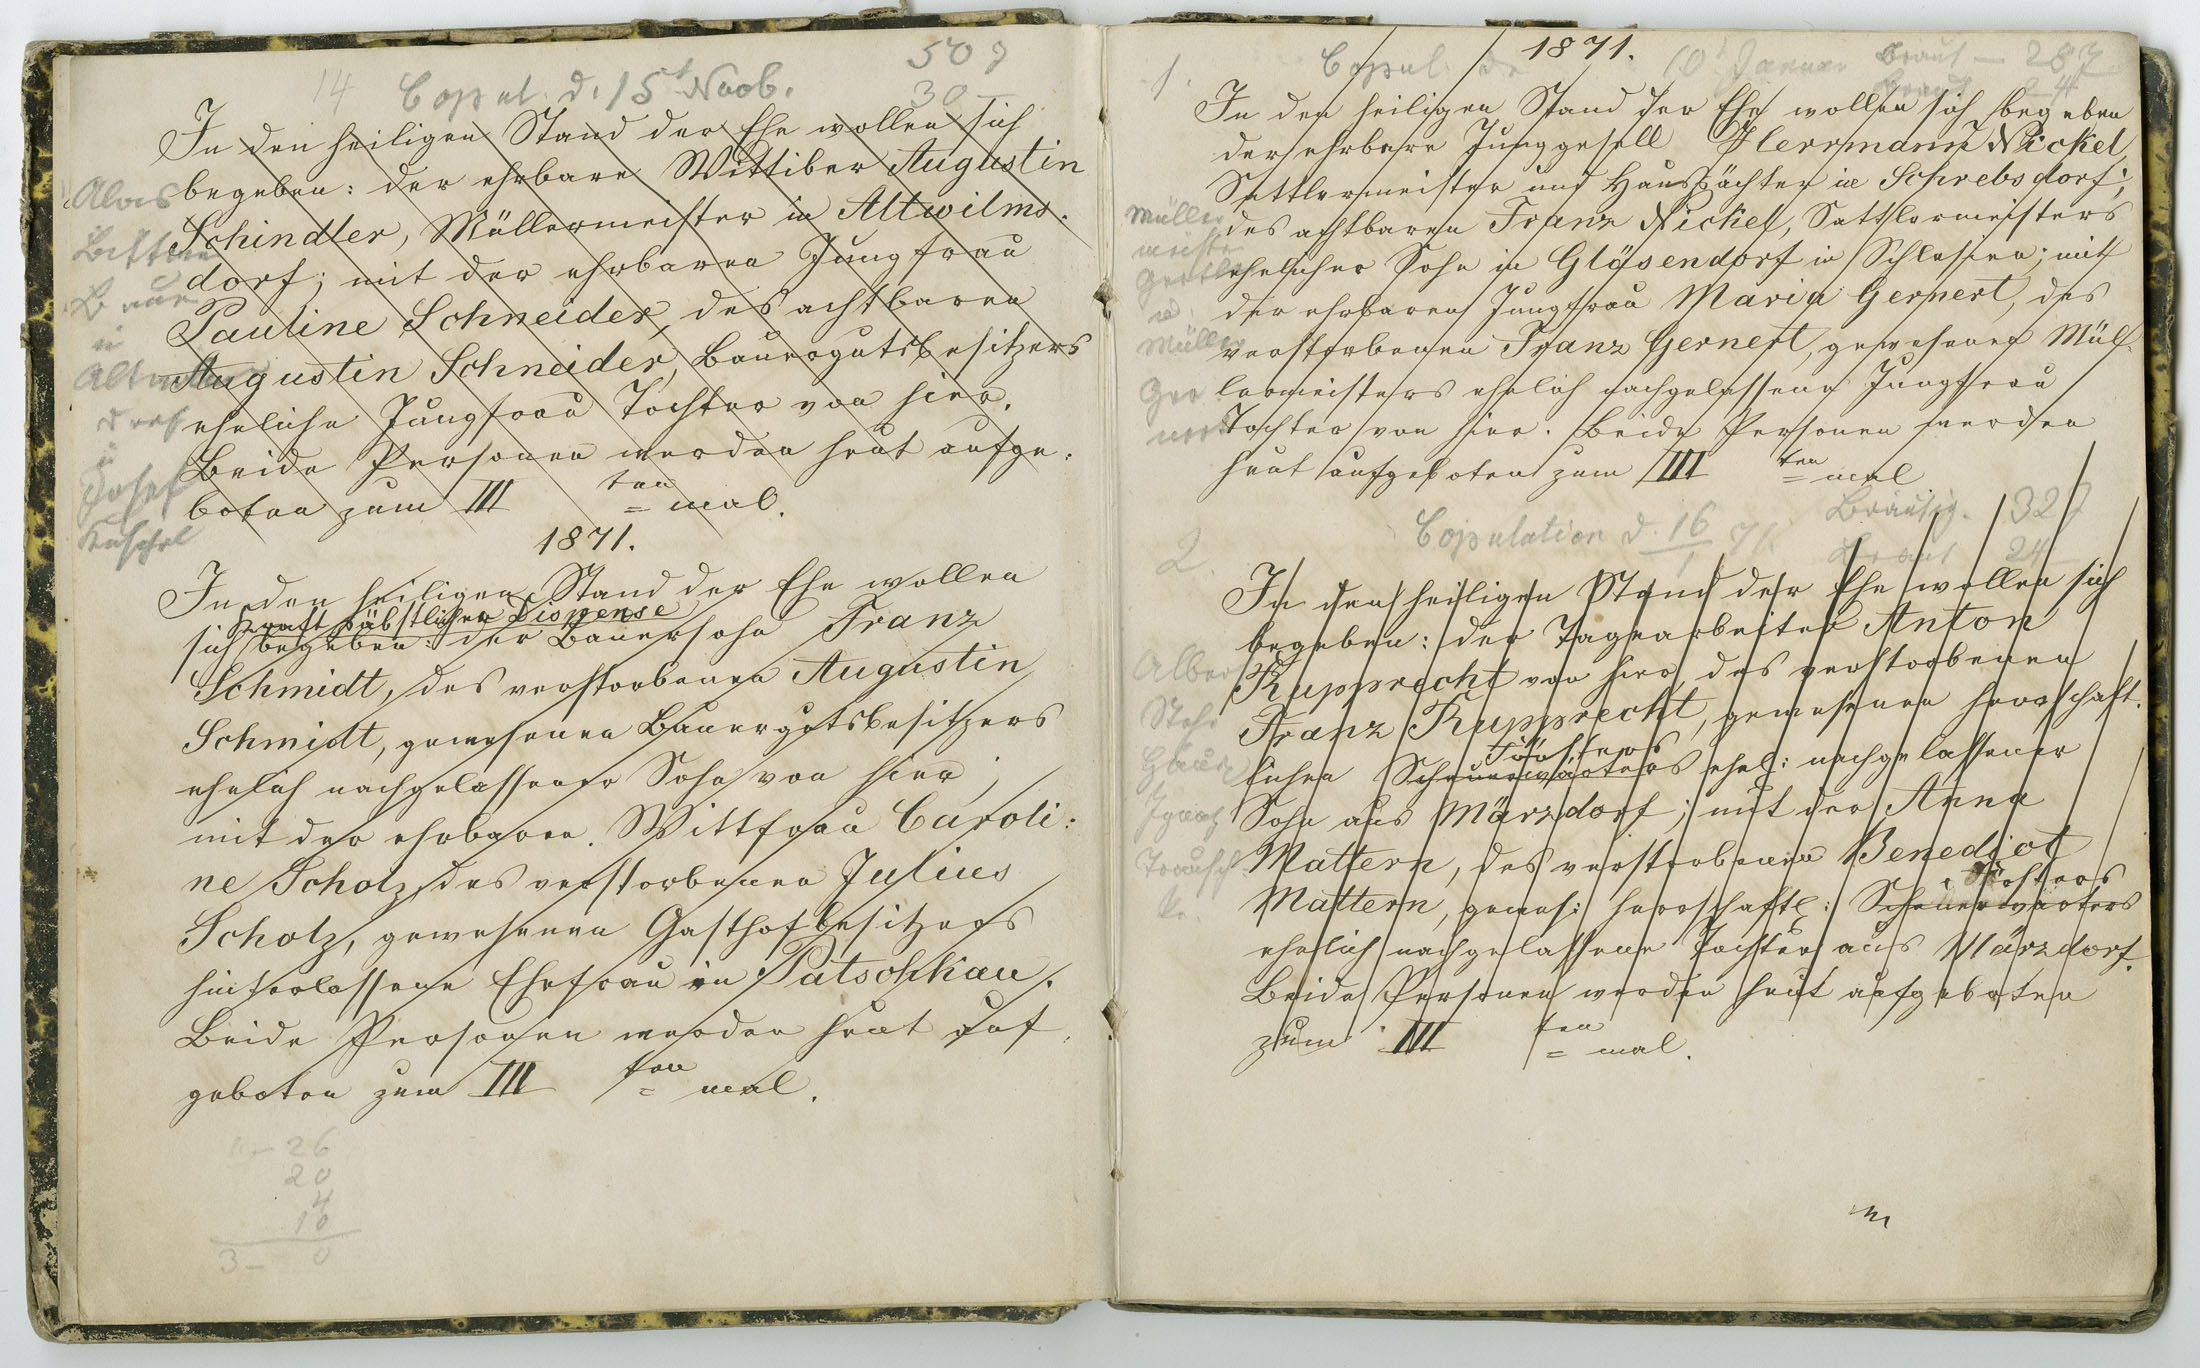 14 Copul. d. 15t Novb.
50 J
30 —
In den heiligen Stand der Ehe wollen sich
begeben: der ehrbare Wittiber Augustin
Schindler, Müllermeister in Altwilms-
dorf; mit der ehrbaren Jungfrau
Pauline Schneider, des achtbaren
Augustin Schneider, Bauergutsbesitzers
eheliche Jungfrau Tochter von hier.
Beide Personen werden heut aufge-
boten zum III ten = mal.
Alois
Bittner
Bauer
in
Altwilms
dorf
u
Josef
Kuschel
1871.
In den heiligen Stand der Ehe wollen
kraft päbstlicher Dispense
sich begeben: der Bauersohn Franz
Schmidt, des verstorbenen Augustin
Schmidt, gewesenen Bauergutsbesitzers
ehelich nachgelassener Sohn von hier;
mit der ehrbaren Wittfrau Caroli:
ne Scholz, des verstorbenen Julius
Scholz, gewesenen Gasthofbesitzers
hinterlassene Ehefrau in Patschkau.
Beide Personen werden heut auf-
geboten zum III ten = mal.
26
20
4
10
3 — 0
1871.
1. Copul. d. 10t Januar
Braut — 28 J
24
In den heiligen Stand der Ehe wollen sich begeben
der ehrbare Junggesell Herrmann Nickel,
Sattlermeister und Hauspächter in Schrebsdorf;
des achtbaren Franz Nickel, Sattlermeisters
ehelicher Sohn in Gläsendorf in Schlesien; mit
der ehrbaren Jungfrau Maria Gernert, des
verstorbenen Franz Gernert, gewesenen Mül-
lermeisters ehelich nachgelassene Jungfrau
Tochter von hier. Beide Personen werden
heut aufgeboten zum III ten = mal
Müller
meister
u.
Müller
Ger
nert
2. Copulation d. 16/1 71.
Bräutig. 32 J
Braut 24 —
In den heiligen Stand der Ehe wollen sich
begeben: der Tagearbeiter Anton
Rupprecht von hier, des verstorbenen
Franz Rupprecht, gewesenen herrschaft-
Försters
lichen Scheuerwärters ehel: nachgelassener
Sohn aus Märzdorf; mit der Anna
Mattern, des verstorbenen Benedict
Försters
Mattern, gewes: herrschaftl: Scheuerwärters
ehelich nachgelassene Tochter aus Märzdorf.
Beide Personen werden heut aufgeboten
zum III ten = mal.
Albert
Ignatz